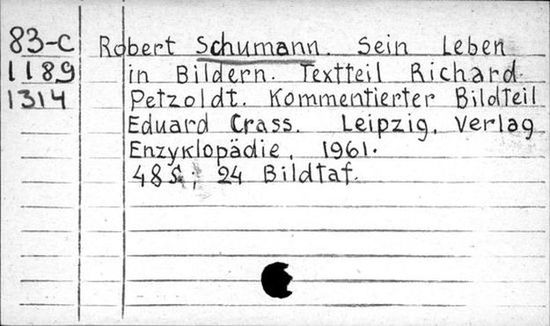 83-C Robert Schumann. Sein Leben
1189 in Bildern. Textteil Richard
1314 Petzoldt. Kommentierter Bildteil
Eduard Crass. Leipzig, Verlag
Enzyklopädie, 1961.
48 S.; 24 Bildtaf.